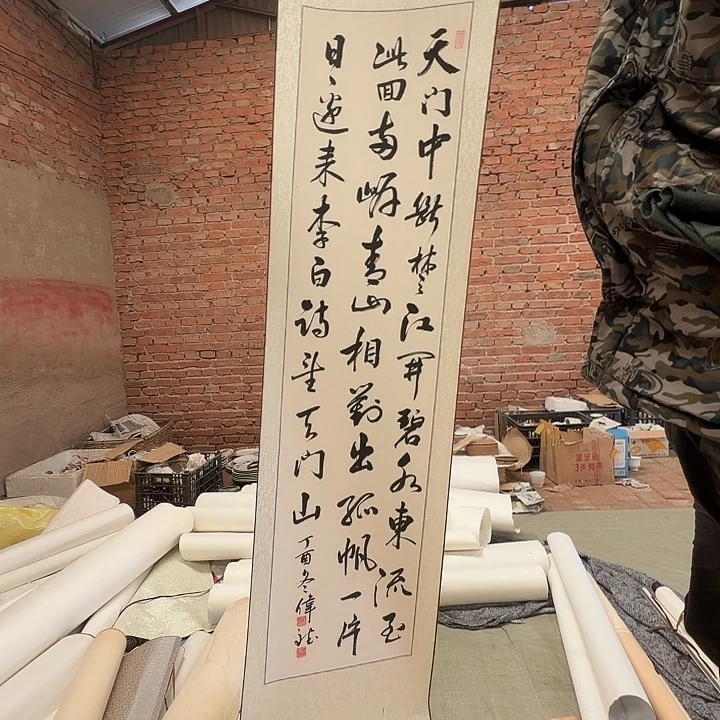 天门中断楚江開碧水東流至
此回两岸青山相對出孤帆一片
日邊来李白诗望天门山
丁酉冬偉